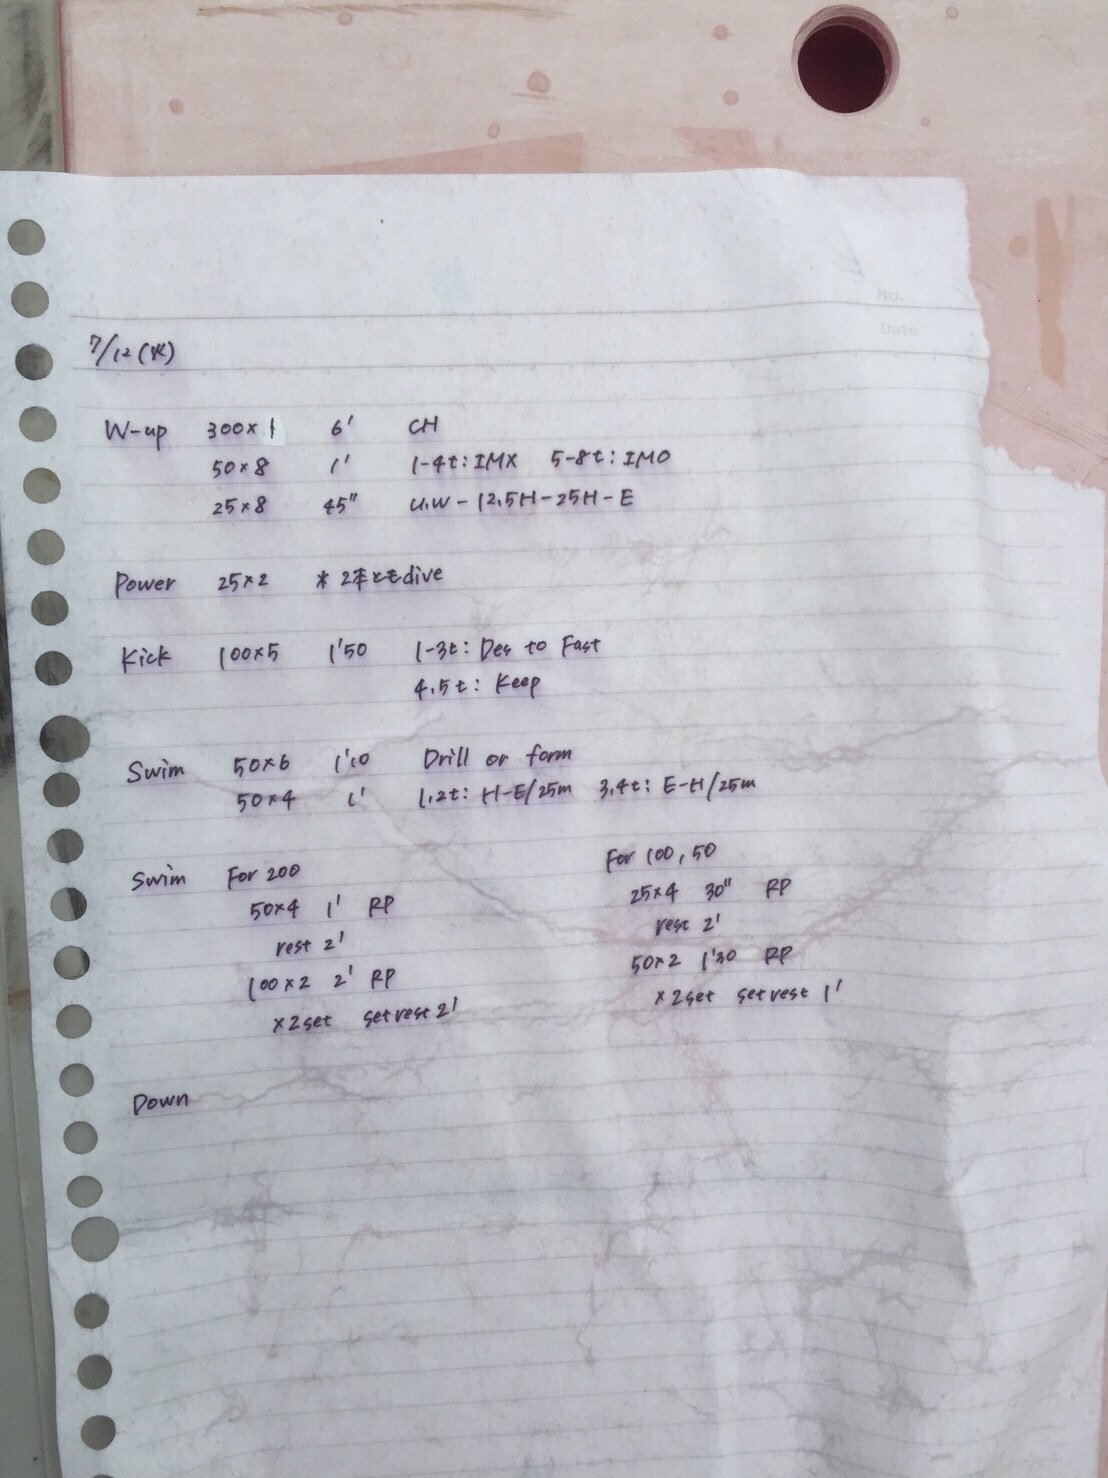 No.
Date
7/12(火)
W-up 300×1 6' CH
50×8 1' 1-4t: IMX 5-8t: IMO
25×8 45" U.W - 12.5H - 25H - E
Power 25×2 * 2本ともdive
Kick 100×5 1'50 1-3t: Des to Fast
4.5t: Keep
Swim 50×6 1'10 Drill or form
50×4 1' 1.2t: H-E/25m 3.4t: E-H/25m
Swim For 200
50×4 1' RP
rest 2'
100×2 2' RP
×2set setrest 2'
For 100, 50
25×4 30" RP
rest 2'
50×2 1'30 RP
×2set setrest 1'
Down